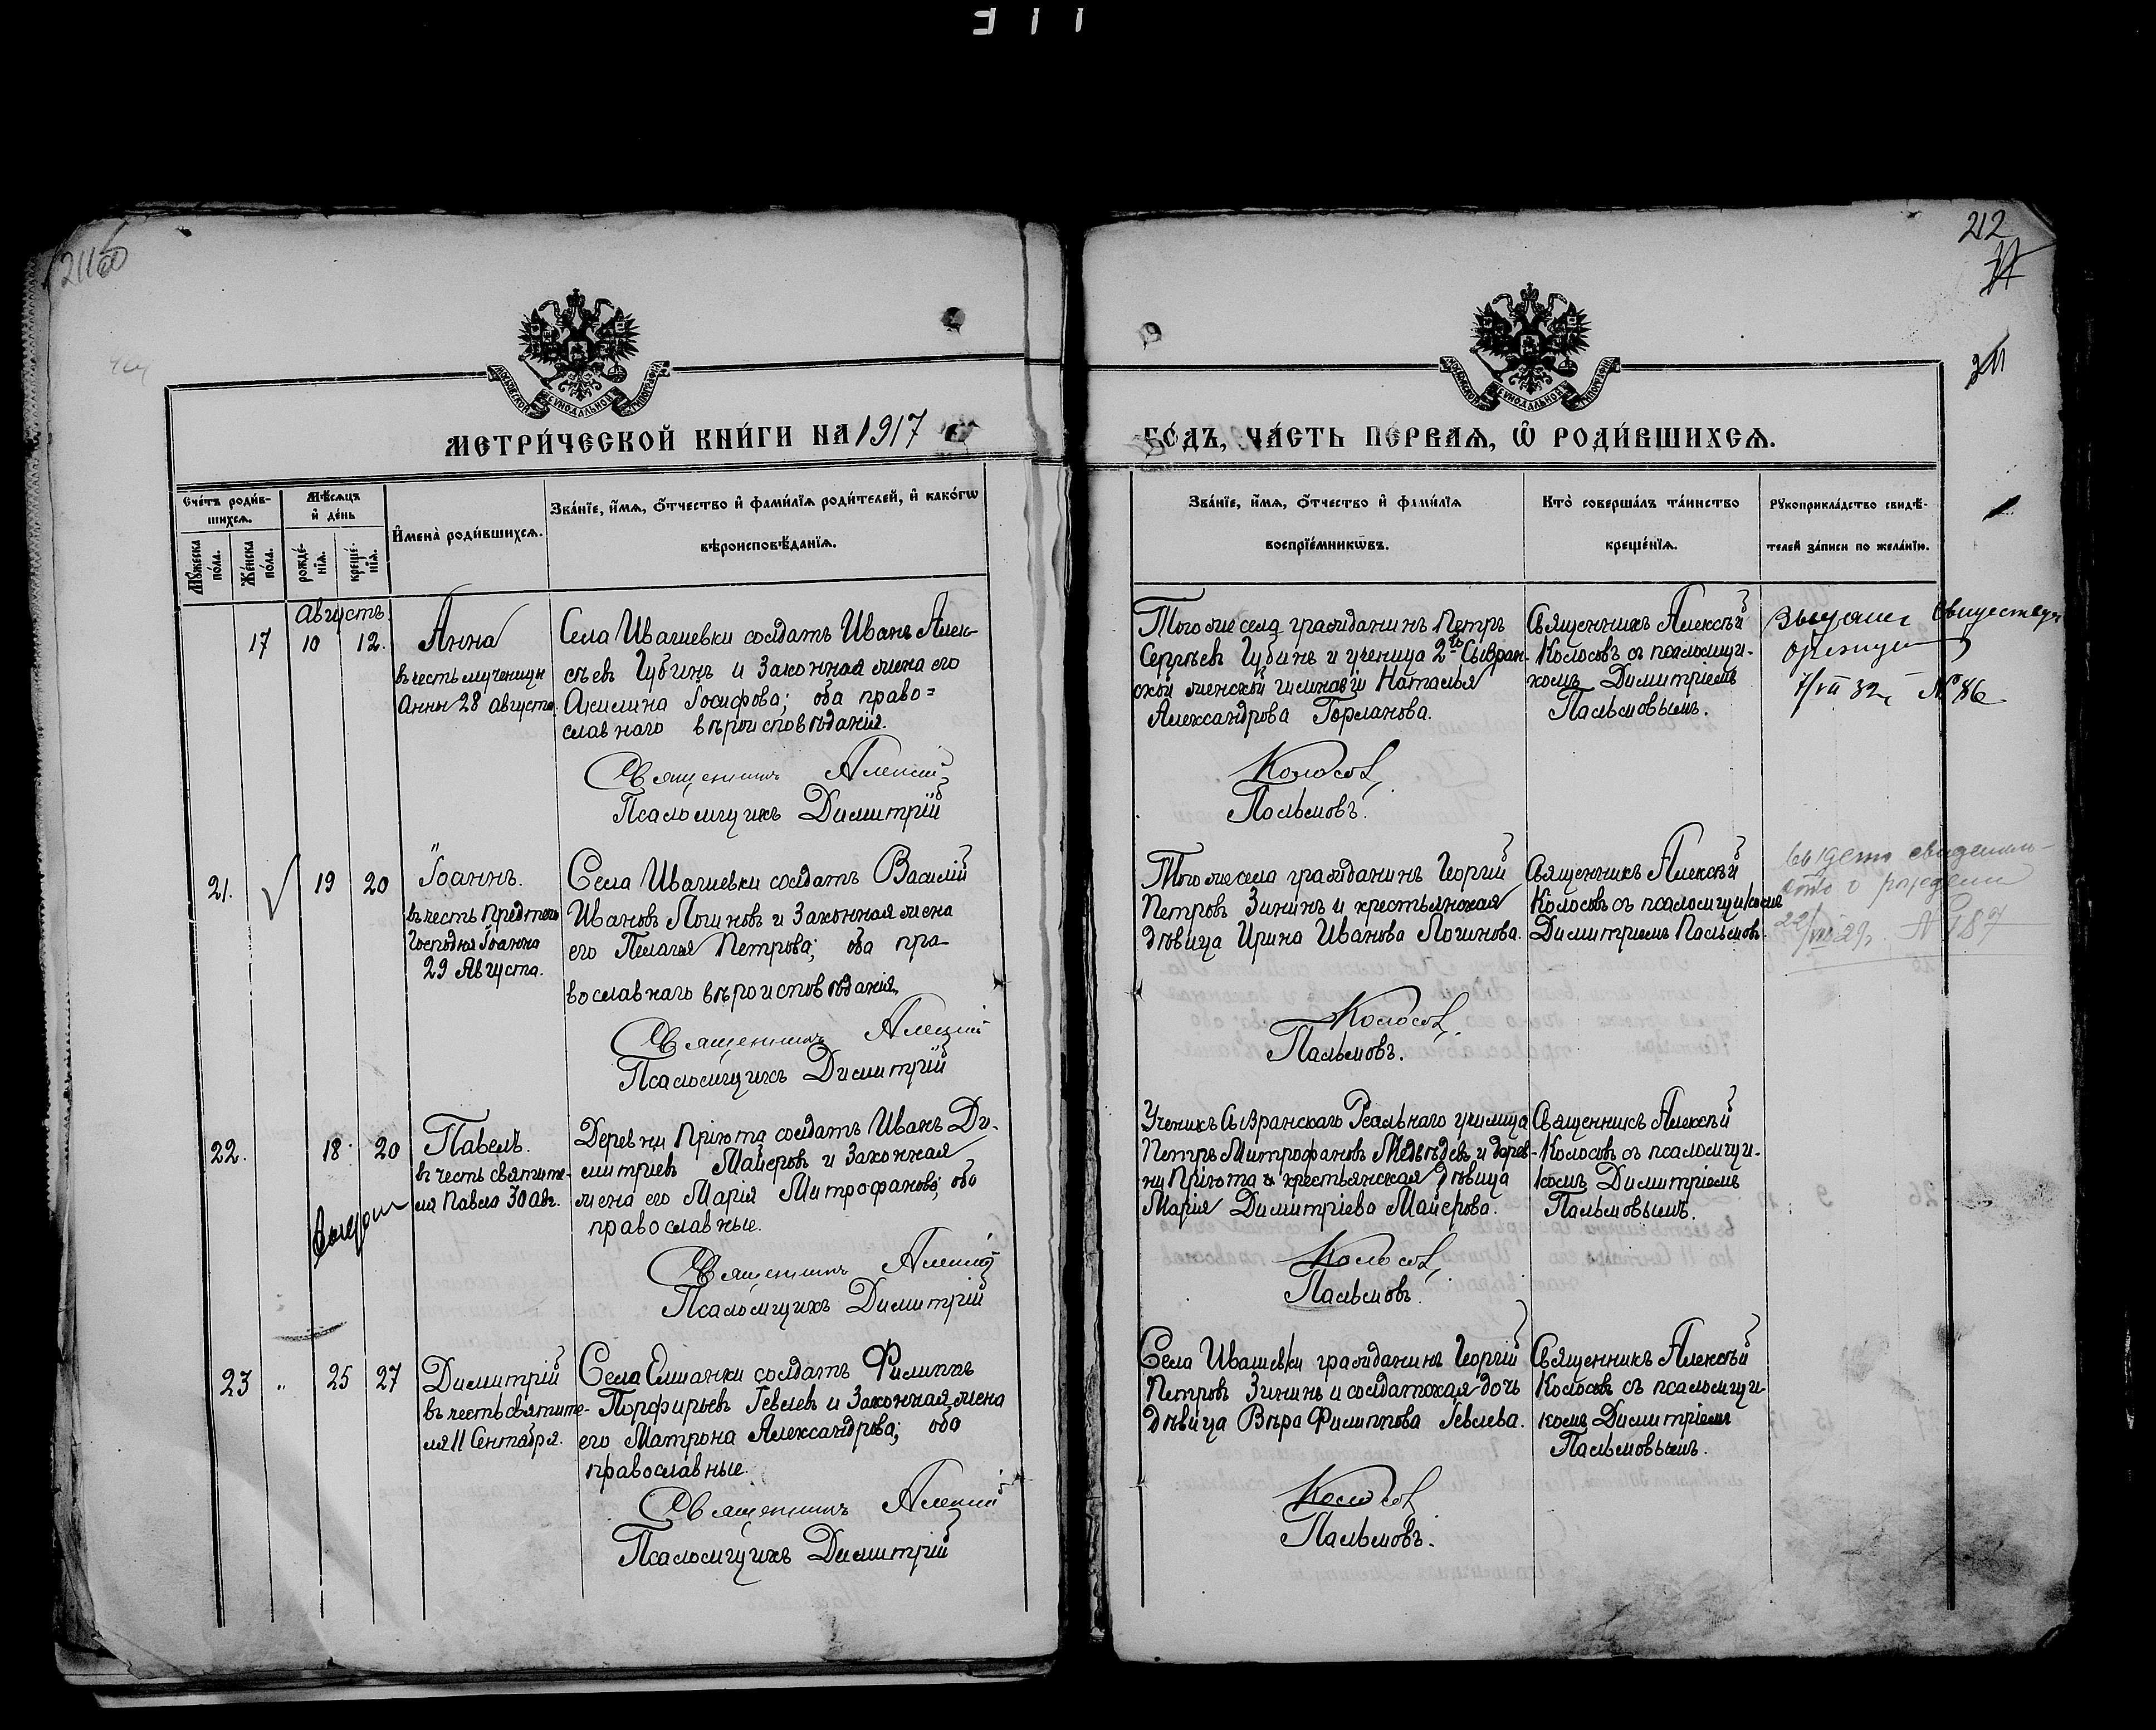 311
211 об
212
МОСКОВСКОЙ СѴНОДАЛЬНОЙ ТИПОГРАФІИ
МОСКОВСКОЙ СѴНОДАЛЬНОЙ ТИПОГРАФІИ
МЕТРИ́ЧЕСКОЙ КНИ́ГИ НА 1917
ГО́ДЪ, ЧА́СТЬ ПЕ́РВАѦ, Ѡ҆ РОДИ́ВШИХСѦ.
Сче́тъ роди́в-
шихсѧ.
Мѣ́сѧцъ
и҆ де́нь
И҆мена̀ роди́вшихсѧ.
Зва́нїе, и҆́мѧ, ѻ҆́тчество и҆ фами́лїѧ роди́телей, и҆ како́гѡ
вѣроисповѣ́данїѧ.
Мꙋ́жеска
по́ла.
Же́нска
по́ла.
рожде́-
нїѧ.
креще́-
нїѧ.
Зва́нїе, и҆́мѧ, ѻ҆́тчество и҆ фами́лїѧ
воспрїе́мникѡвъ.
Кто̀ соверша́лъ та́инство
креще́нїѧ.
Рꙋкоприкла́дство свидѣ́-
телей за́писи по жела́нїю.
Августъ.
17 10 12.
Анна
въ честь мученицы
Анны 28 августа.
Села Ивашевки солдатъ Иванъ Алек-
сѣевъ Губинъ и законная жена его
Акилина Іосифова; оба право=
славнаго вѣроисповѣданія.
Священникъ Алексій
Псаломщикъ Димитрій
Того же села гражданинъ Петръ
Сергѣевъ Губинъ и ученица 2й Сызран-
ской женской гимназіи Наталья
Александрова Горланова.
Колосовъ
Пальмовъ.
Священникъ Алексѣй
Колосовъ съ псаломщи-
комъ Димитріемъ
Пальмовымъ.
№ 86
21. 19 20
Іоаннъ.
въ честь Предтечи
Господня Іоанна
29 Августа.
Села Ивашевки солдатъ Василій
Ивановъ Логиновъ и законная жена
его Пелагья Петрова; оба пра-
вославнаго вѣроисповѣданія.
Священникъ Алексій
Псаломщикъ Димитрій
Того же села гражданинъ Георгій
Петровъ Зининъ и крестьянская
дѣвица Ирина Иванова Логинова.
Колосовъ
Пальмовъ.
Священникъ Алексѣй
Колосовъ съ псаломщикомъ
Димитріемъ Пальмовъ.
выдано свидетель-
ство о рождении
№ 187
22. 18. 20
Павелъ.
въ честь святите-
ля Павла 30 авг.
Деревни Пріюта солдатъ Иванъ Ди-
митріевъ Майеровъ и законная
жена его Марія Митрофанова; оба
православные.
Священникъ Алексій
Псаломщикъ Димитрій
Ученикъ Сызранскаго Реальнаго училища
Петръ Митрофановъ Медвѣдевъ и дерев-
ни Пріюта крестьянская дѣвица
Марія Димитріева Майерова.
Колосовъ
Пальмовъ.
Священникъ Алексѣй
Колосовъ съ псаломщи-
комъ Димитріемъ
Пальмовымъ.
23 " 25 27
Димитрій
въ честь святите-
ля 11 Сентября.
Села Елшанки солдатъ Филиппъ
Порфирьевъ Іевлевъ и законная жена
его Матрона Александрова; оба
православные.
Священникъ Алексій
Псаломщикъ Димитрій
Села Ивашевки гражданинъ Георгій
Петровъ Зининъ и солдатская дочь
дѣвица Вѣра Филиппова Іевлева.
Колосовъ
Пальмовъ.
Священникъ Алексѣй
Колосовъ съ псаломщи-
комъ Димитріемъ
Пальмовымъ.